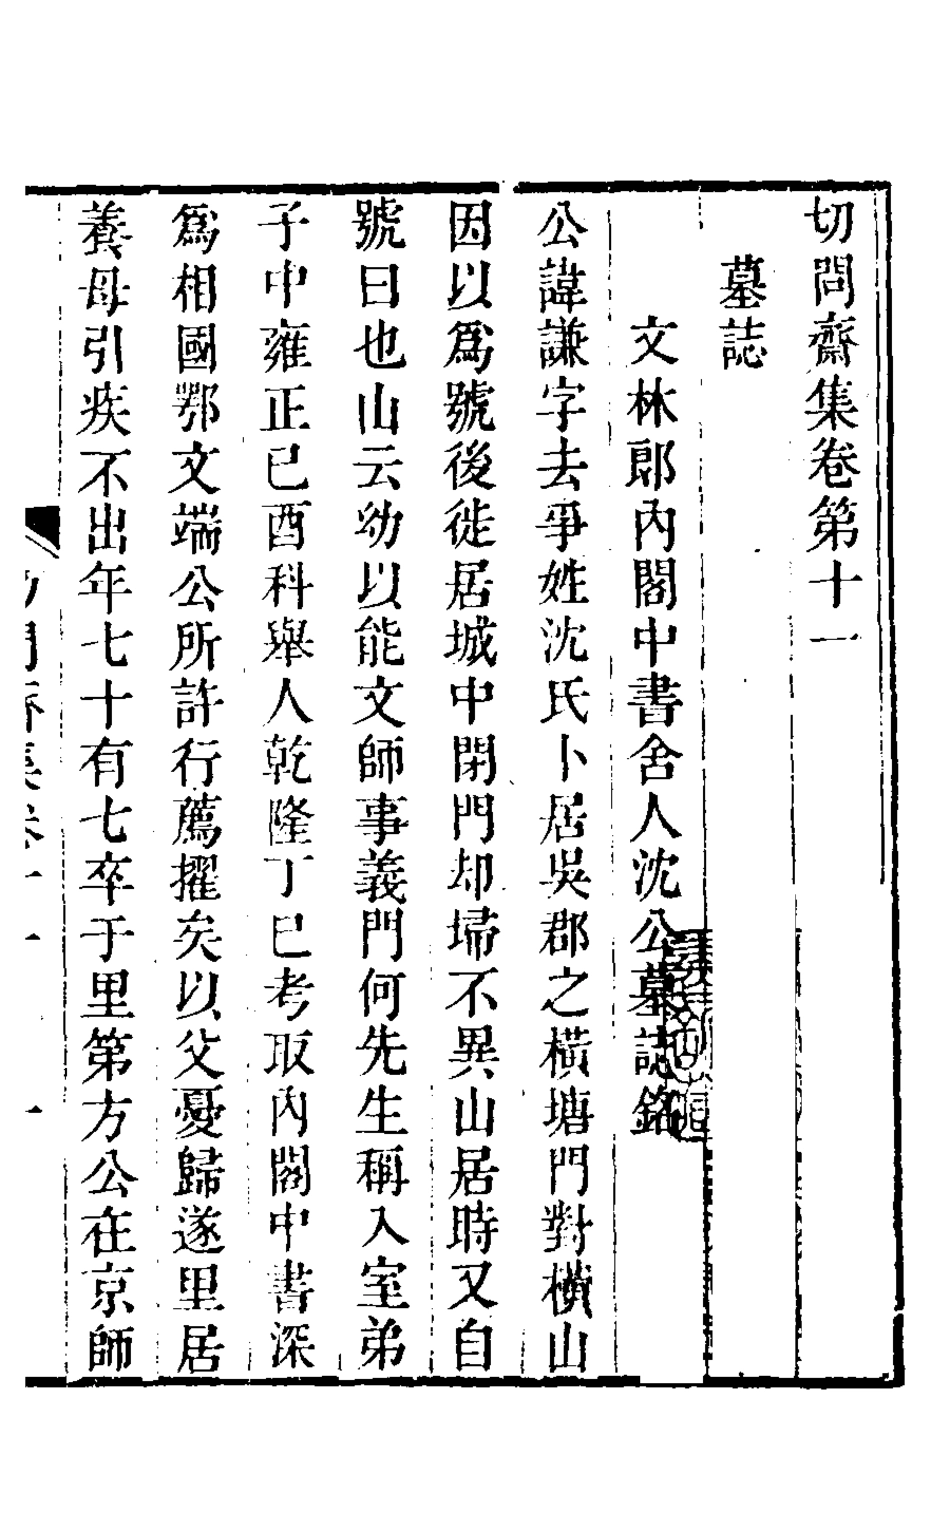 切問齋集卷第十一
墓誌
文林郎內閣中書舍人沈公墓誌銘
公諱謙字去爭姓沈氏卜居吳郡之橫塘門對橫山
因以爲號後徙居城中閉門却埽不異山居時又自
號曰也山云幼以能文師事義門何先生稱入室弟
子中雍正己酉科舉人乾隆丁巳考取內閣中書深
爲相國鄂文端公所許行薦擢矣以父憂歸遂里居
養母引疾不出年七十有七卒于里第方公在京師